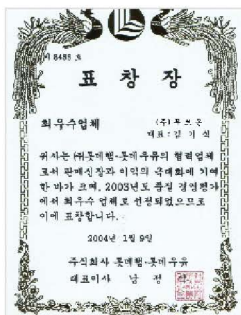 제 8485 호
표 창 장
최우수업체
(주)푸르온
대표:김기식
위사는 (주)롯데햄·롯데우유의 협력업체
로서 판매신장과 이익의 극대화에 기여
한 바가 크며, 2003년도 품질 경영평가
에서 최우수 업체로 선정되었으므로
이에 표창합니다.
2004년 1월 9일
주식회사 롯데햄·롯데우유
대표이사 남 정